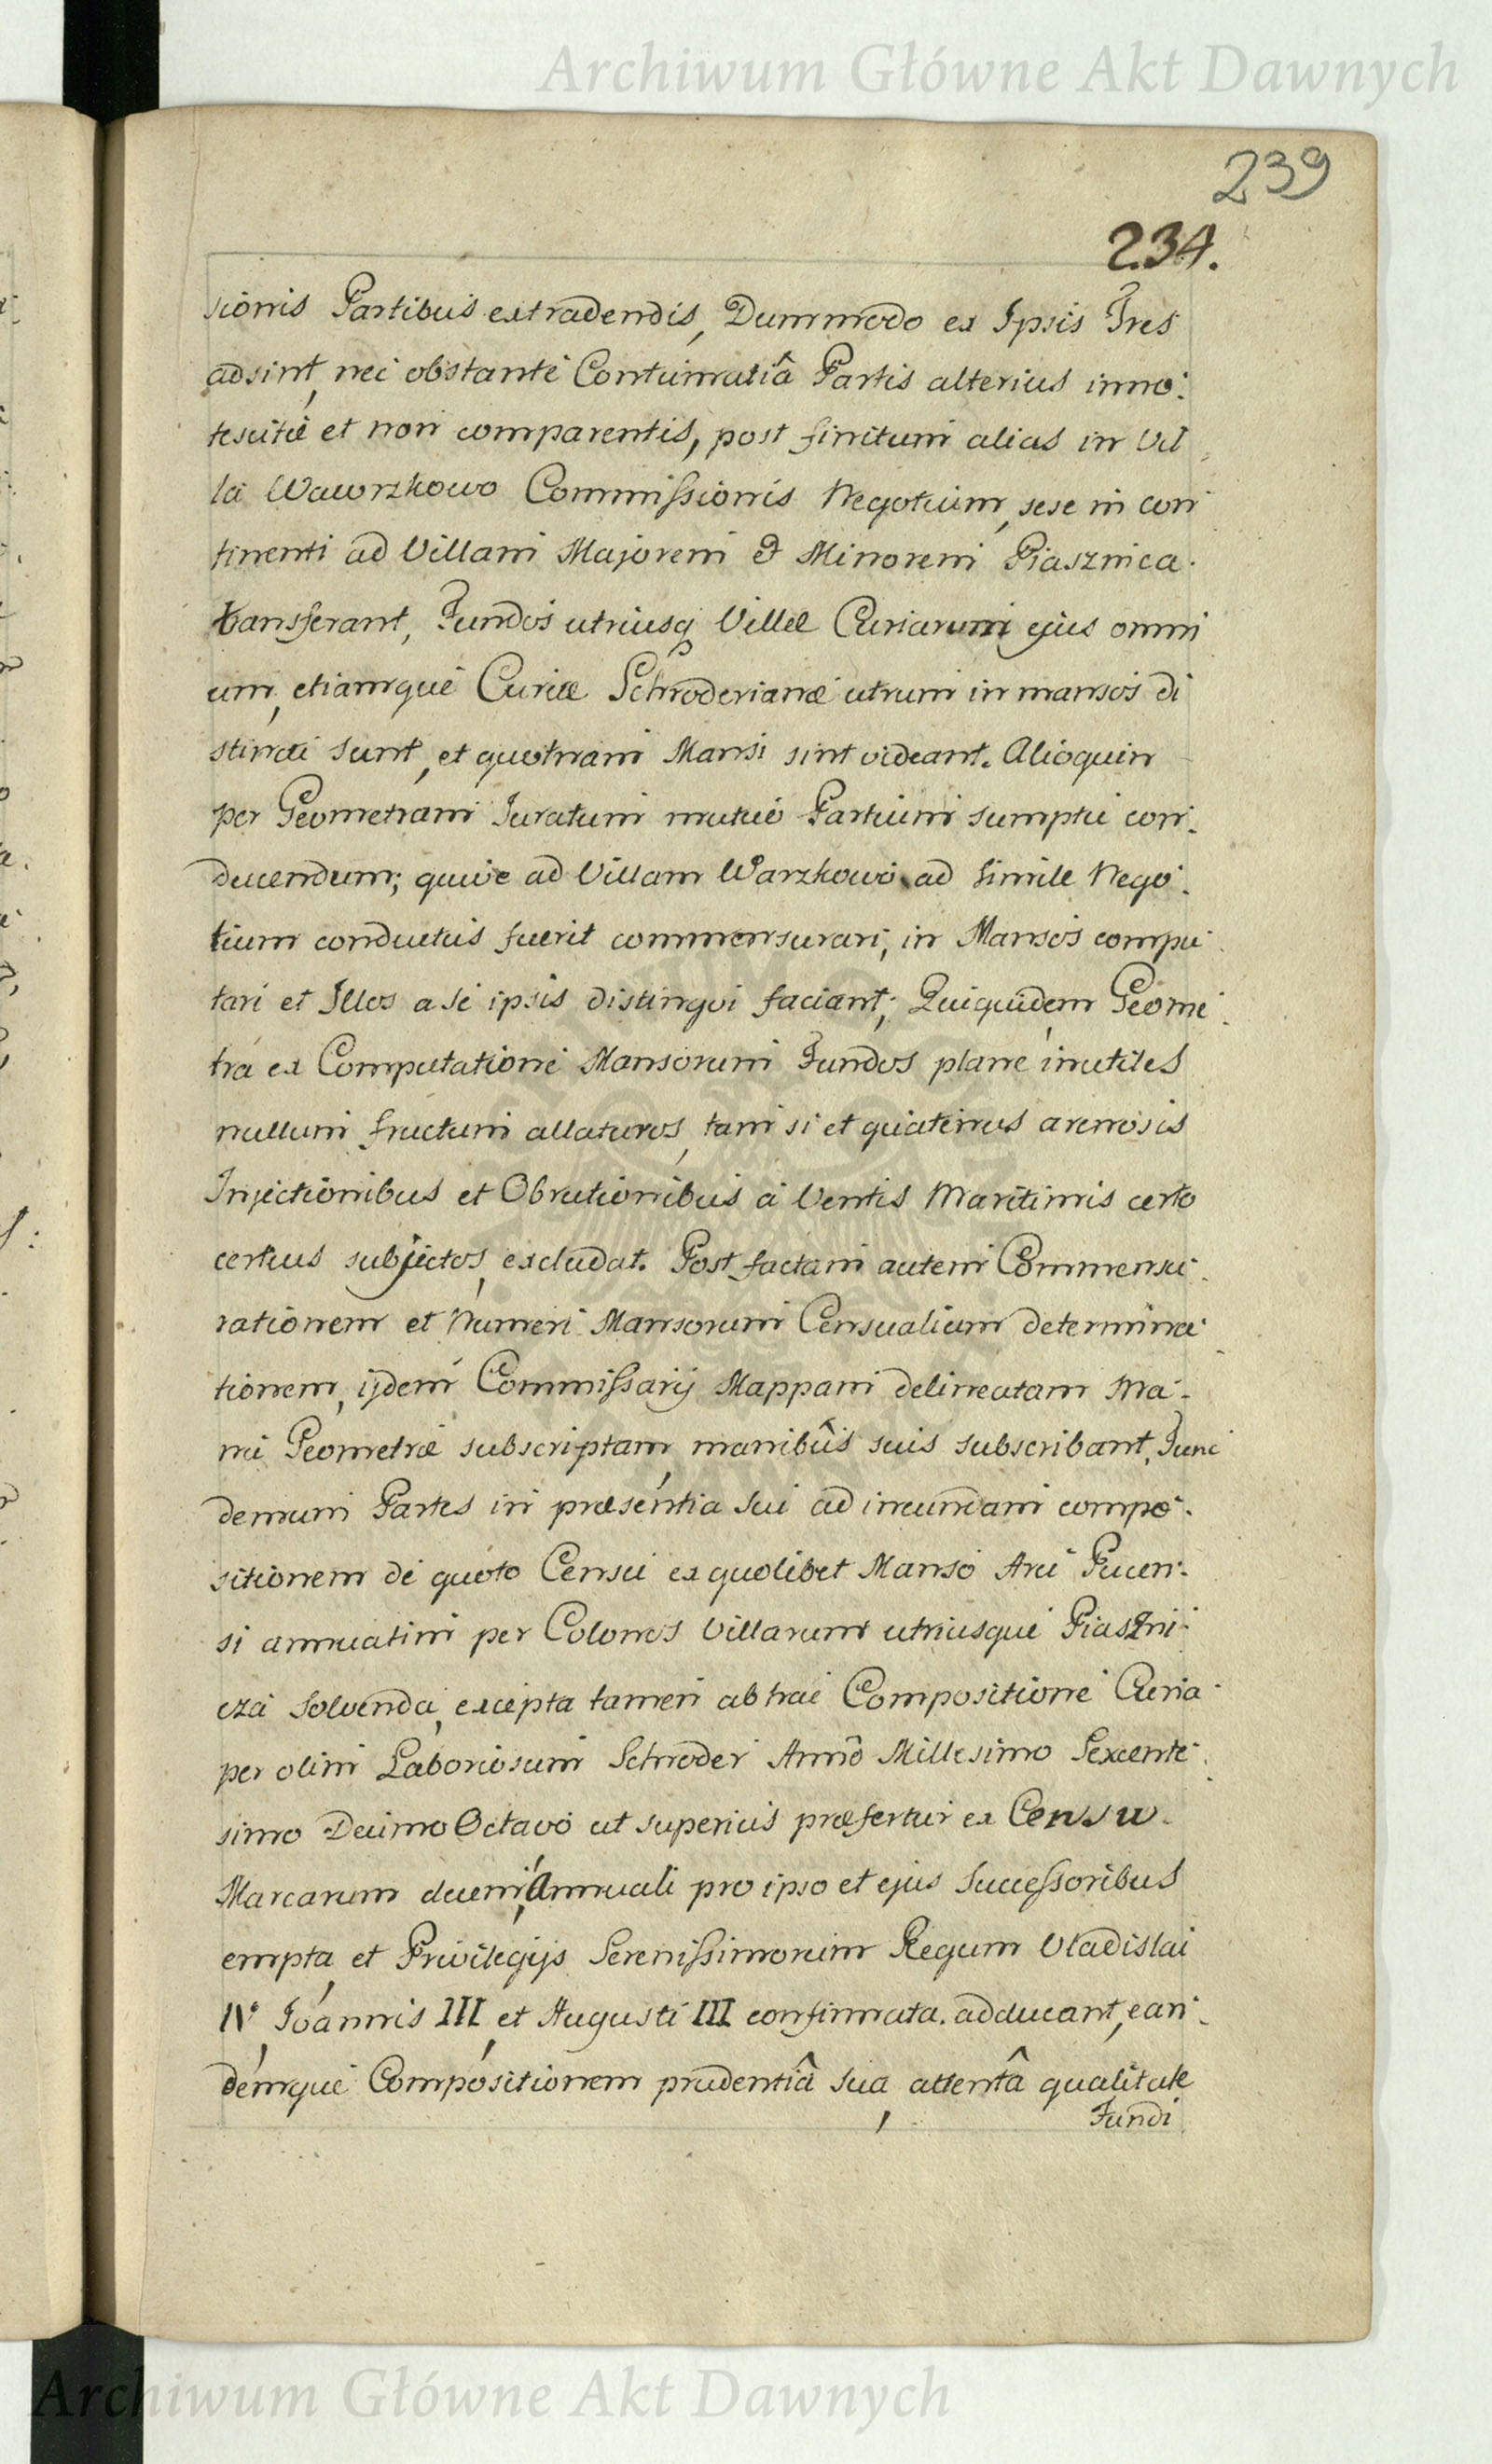 Archiwum Główne Akt Dawnych
239
234.
sionis Partibus extradendis, Dummodo ex Ipsis Tres
adsint, nec obstante Contumatiâ Partis alterius inno-
tescitæ et non comparentis, post finitum alias in Vil-
la Wawrzkowo Commissionis Negotium, sese in con-
tinenti ad Villam Majorem & Minorem Piasznica
transferant, Fundos utriusq Villæ Curiarum ejus omni
um, etiamque Curiæ Schroderianæ utrum in mansos di
stincti sunt, et quotnam Mansi sint videant. Alioquin
per Geometram Juratum mutuo Partium sumptu con-
ducendum; quive ad Villam Warzkowo ad simile Nego-
tium conductus fuerit commensurari, in Mansos compu-
tari et Illos a se ipsis distingvi faciant; Quiquidem Geome-
tra ex Computatione Mansorum Fundos plane inutiles
nullum fructum allaturos, tam si et quatenus arenosis
Injectionibus et Obrutionibus a Ventis Maritimis certo
certius subjectos, excludat. Post factam autem Commensu-
rationem et Numeri Mansorum Censualium determina-
tionem, ijdem Commissarij Mappam delineatam Ma-
nu Geometræ subscriptam, manibûs suis subscribant, Tunc
demum Partes in præsentia sui ad ineundam compo-
sitionem de quoto Censu ex quolibet Manso Arci Pucen-
si annuatim per Colonos Villarum utriusque Piaszni-
cza solvenda, excepta tamen ab hac Compositione Curia
per olim Laboriosum Schroder Annô Millesimo Sexcente-
simo Decimo Octavo ut superius præfertur ex Censu
Marcarum decem, Annuali pro ipso et ejus Successoribus
empta, et Privilegijs Serenissimorum Regum Vladislai
IV, Joannis III, et Augusti III confirmata. adducant, ean-
demque Compositionem prudentiâ sua, attentâ qualitate
Fundi
Archiwum Główne Akt Dawnych